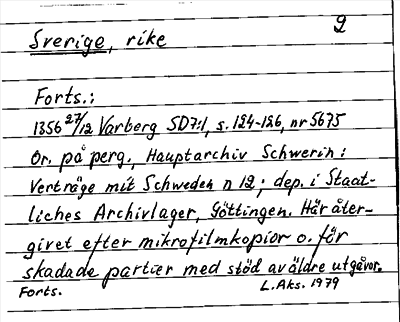 2
Sverige, rike
Forts.:
1356 27/12 Varberg SD7:1, s. 124-126, nr 5675
Or. på perg., Hauptarchiv Schwerin:
Verträge mit Schweden n 12; dep. i Staat-
liches Archivlager, Göttingen. Här åter-
givet efter mikrofilmkopior o. för
skadade partier med stöd av äldre utgåvor.
Forts. L.Aks. 1979